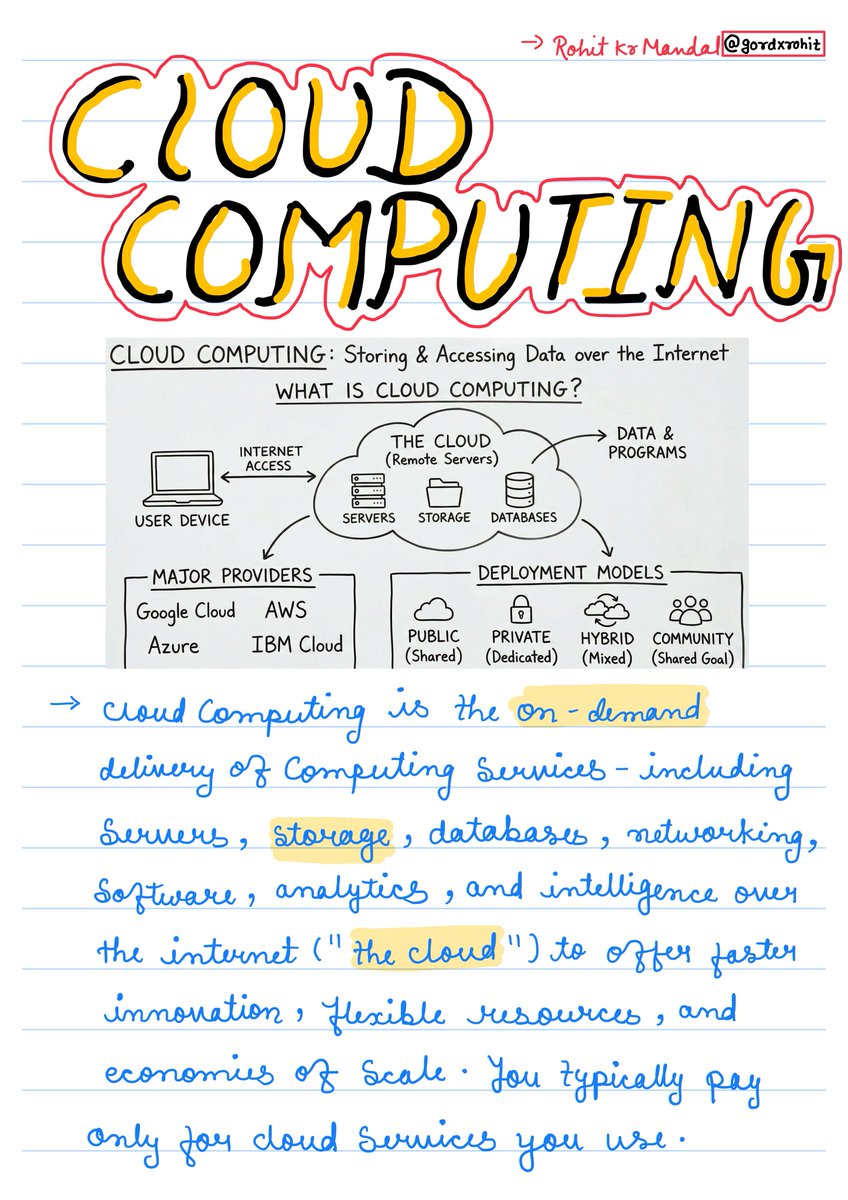 → Rohit Kr Mandal @gordxrohit
CLOUD
COMPUTING
CLOUD COMPUTING: Storing & Accessing Data over the Internet
WHAT IS CLOUD COMPUTING?
THE CLOUD
(Remote Servers)
INTERNET
ACCESS
DATA &
PROGRAMS
USER DEVICE
SERVERS STORAGE DATABASES
MAJOR PROVIDERS
Google Cloud AWS
Azure IBM Cloud
DEPLOYMENT MODELS
PUBLIC
(Shared)
PRIVATE
(Dedicated)
HYBRID
(Mixed)
COMMUNITY
(Shared Goal)
→ Cloud Computing is the on-demand
delivery of Computing Services - including
Servers, storage, databases, networking,
Software, analytics, and intelligence over
the internet ("the cloud") to offer faster
innovation, flexible resources, and
economies of Scale. You typically pay
only for cloud Services you use.